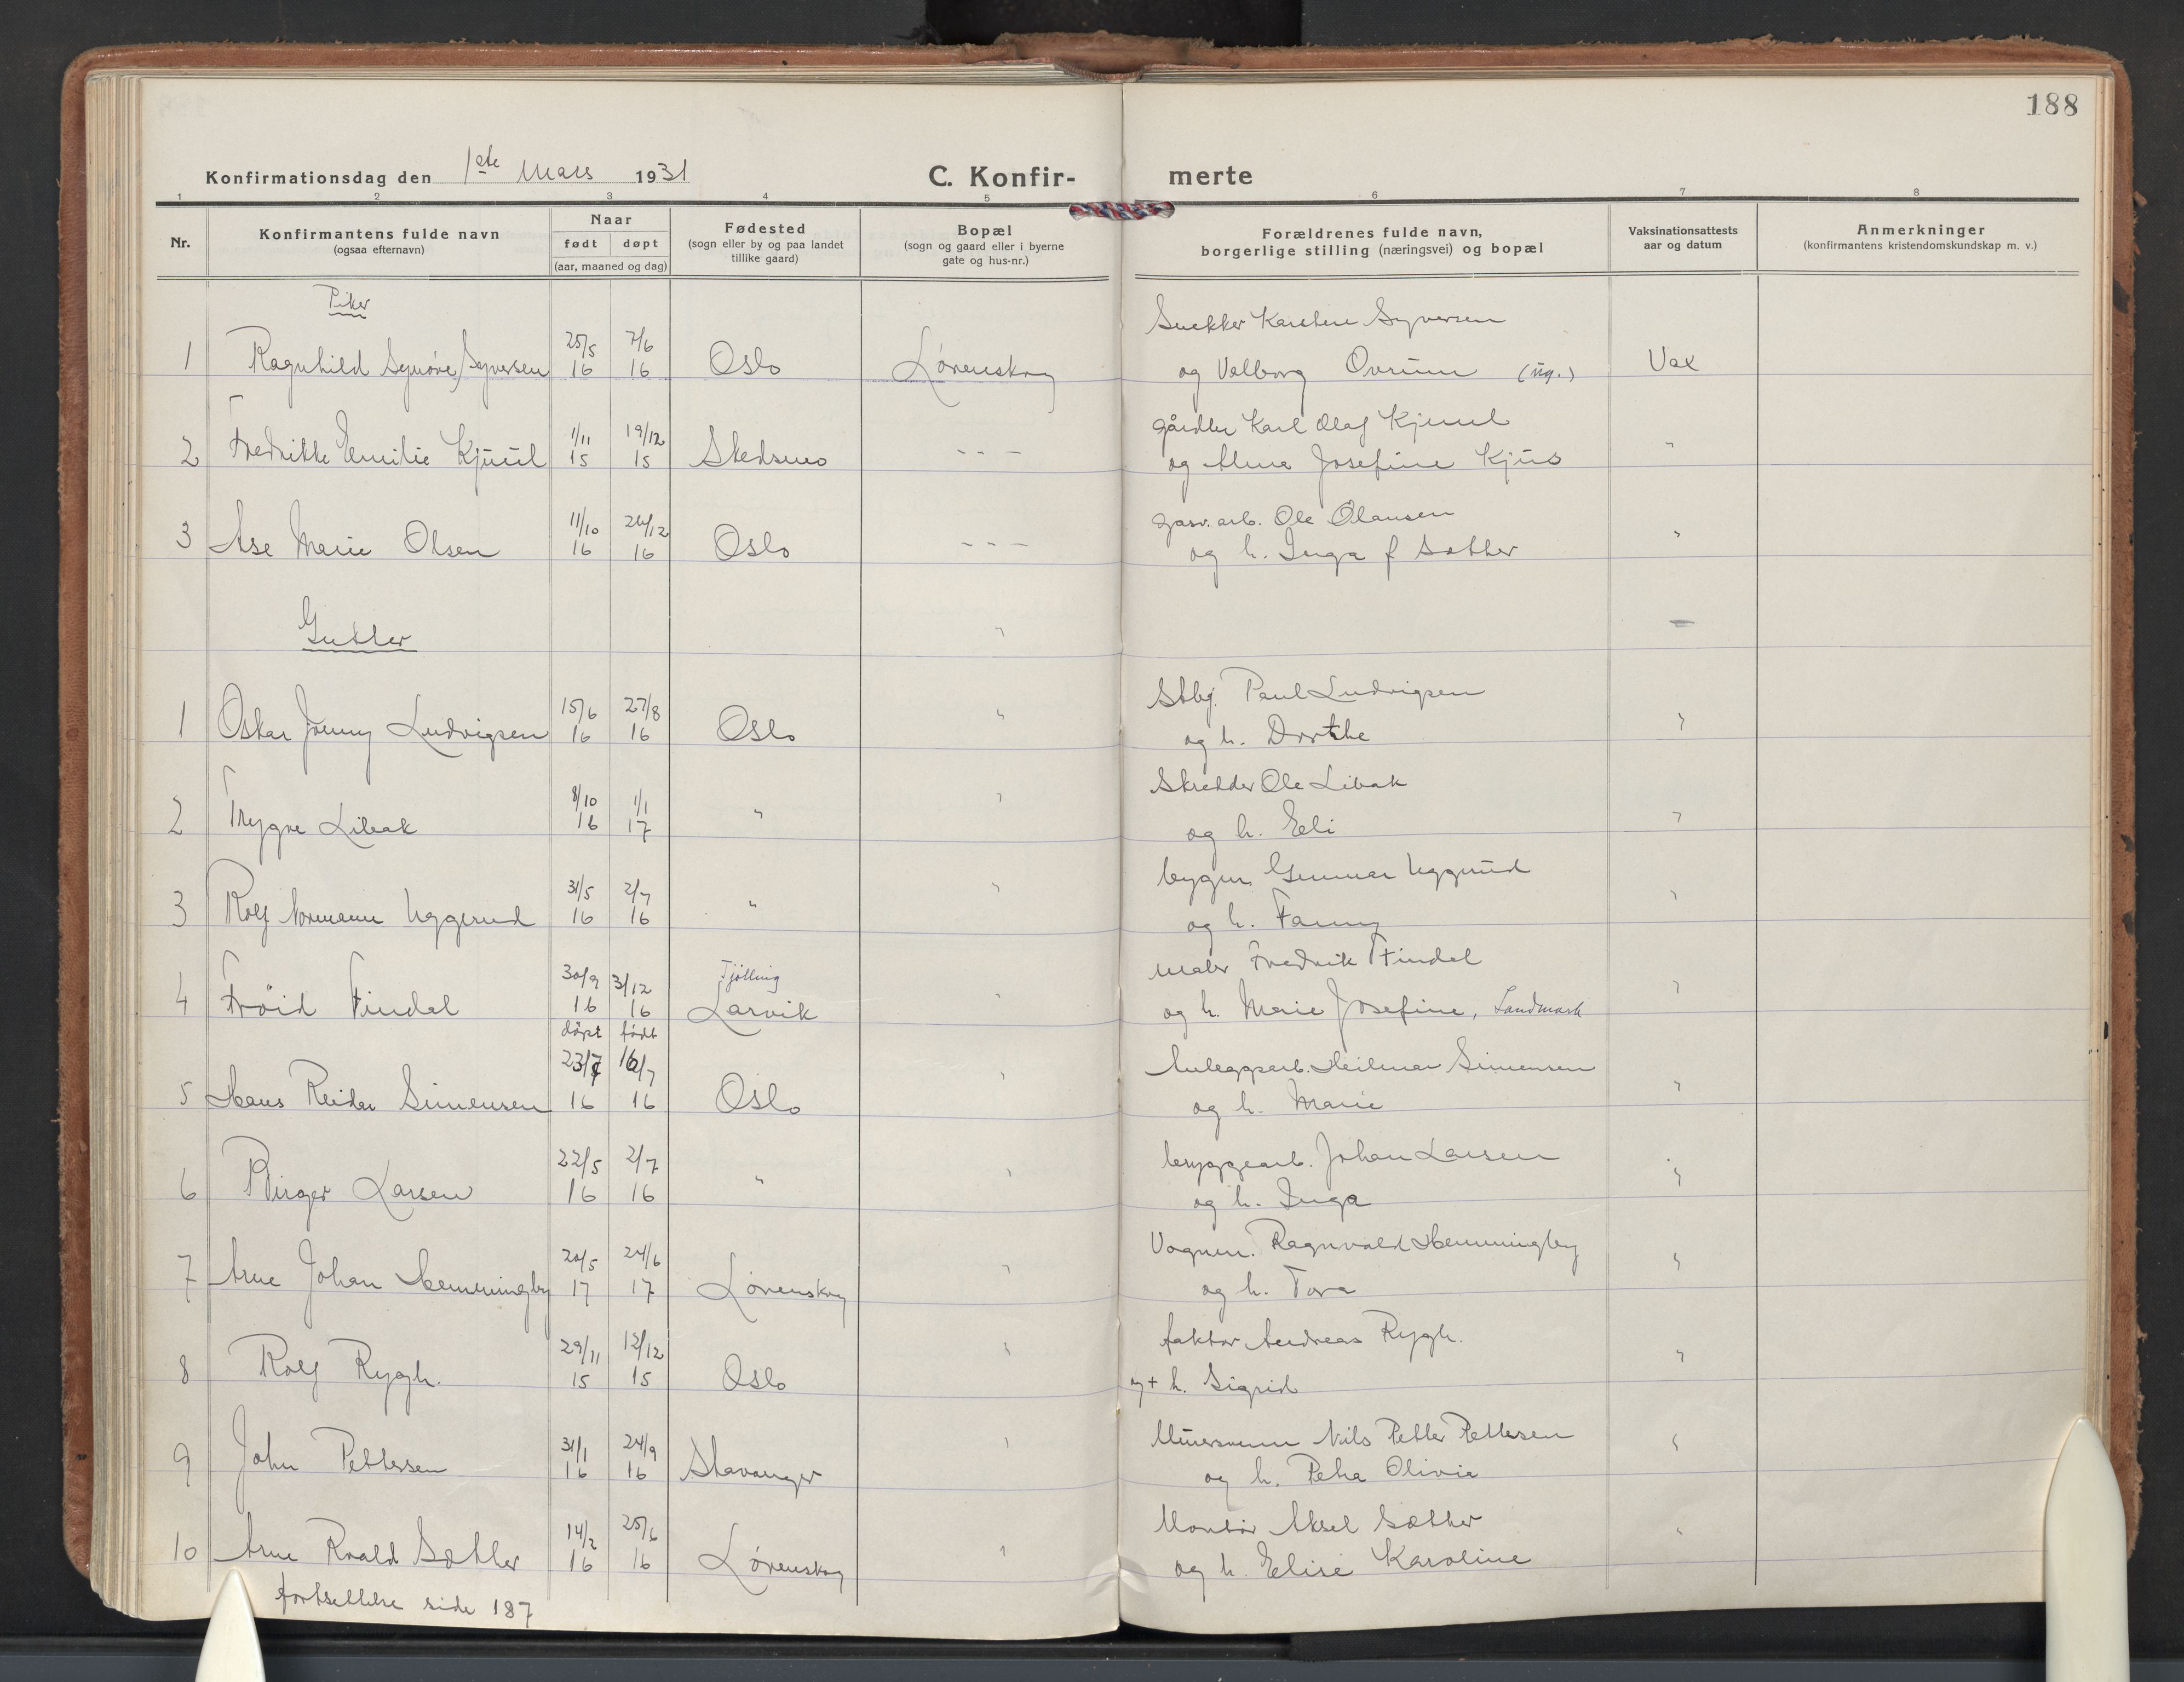 188
Konfirmationsdag den 1ste Mars 1931
C. Konfir- merte
1 2 3 4 5 6 7 8
Nr.
Konfirmantens fulde navn
(ogsaa efternavn)
Naar
født døpt
(aar, maaned og dag)
Fødested
(sogn eller by og paa landet
tillike gaard)
Bopæl
(sogn og gaard eller i byerne
gate og hus-nr.)
Forældrenes fulde navn,
borgerlige stilling (næringsvei) og bopæl
Vaksinationsattests
aar og datum
Anmerkninger
(konfirmantens kristendomskundskap m. v.)
Piker
25/5 7/6 Snekker Karsten Syversen
1 Ragnhild Synøve Syversen 16 16 Oslo Lørenskog og Valborg Ovrum (ug.) Vax
1/11 19/12 gårdbr Karl Olaf Kjuul
2 Fredrikke Emilie Kjuul 15 15 Skedsmo - - - og Alma Josefine Kjus "
11/10 26/12 gasv. arb. Ole Olausen
3 Åse Marie Olsen 16 16 Oslo - - - og h. Inga f Sæther "
Gutter " -
15/6 27/8 Stbej. Paul Ludvigsen
1 Oskar Jonny Ludvigsen 16 16 Oslo " og h. Dorthe "
8/10 1/1 Skredder Ole Libak
2 Trygve Libak 16 17 " " og h. Eli "
31/5 2/7 bygm. Gunnar Uggerud
3 Rolf Normann Uggerud 16 16 " " og h. Fanny "
30/9 3/12 Tjølling maler Fredrik Findal
4 Frøid Findal 16 16 Larvik " og h. Marie Josefine, Landmark "
døpt født
23/7 16/7 Anleggsarb. Heilmar Simensen
5 Hans Reidar Simensen 16 16 Oslo " og h. Marie "
22/5 2/7 bryggearb. Johan Larsen
6 Birger Larsen 16 16 " " og h. Inga "
20/5 24/6 Vognm. Ragnvald Hemmingby
7 Arne Johan Hemmingby 17 17 Lørenskog " og h. Tora "
29/11 12/12 faktor Andreas Rygh.
8 Rolf Rygh. 15 15 Oslo " og + h. Sigrid "
31/1 24/9 Murersvenn Nils Petter Pettersen
9 John Pettersen 16 16 Stavanger " og h. Petra Olivia "
14/2 25/6 Montør Aksel Sæther
10 Arne Roald Sæther 16 16 Lørenskog " og h. Elise Karoline "
fortsettelse side 187